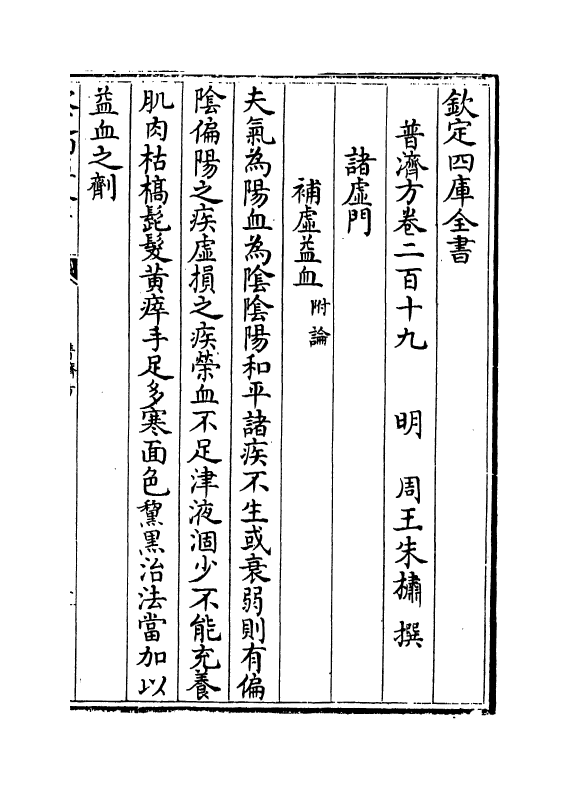 欽定四庫全書
普濟方卷二百十九 明 周王朱橚 撰
諸虛門
補虛益血 附論
夫氣為陽血為陰陰陽和平諸疾不生或衰弱則有偏
陰偏陽之疾虛損之疾榮血不足津液涸少不能充養
肌肉枯槁髭髮黃瘁手足多寒面色黧黑治法當加以
益血之劑